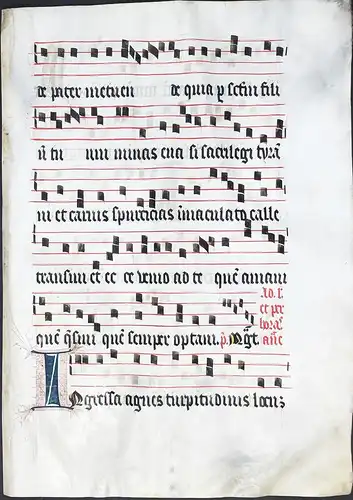 de pater metuen de quia p sctm fili
ũ tu um minas eua si sacrilegi tyrã
ni et carnis spurcicias ĩmaculato calle
transiui et ec ce venio ad te quẽ amaui
quẽ q̃siui quẽ semper optaui. p. Mg̃t.
Ad. L.
et per
horas
añe
Ingressa agnes turpitudinis locuz